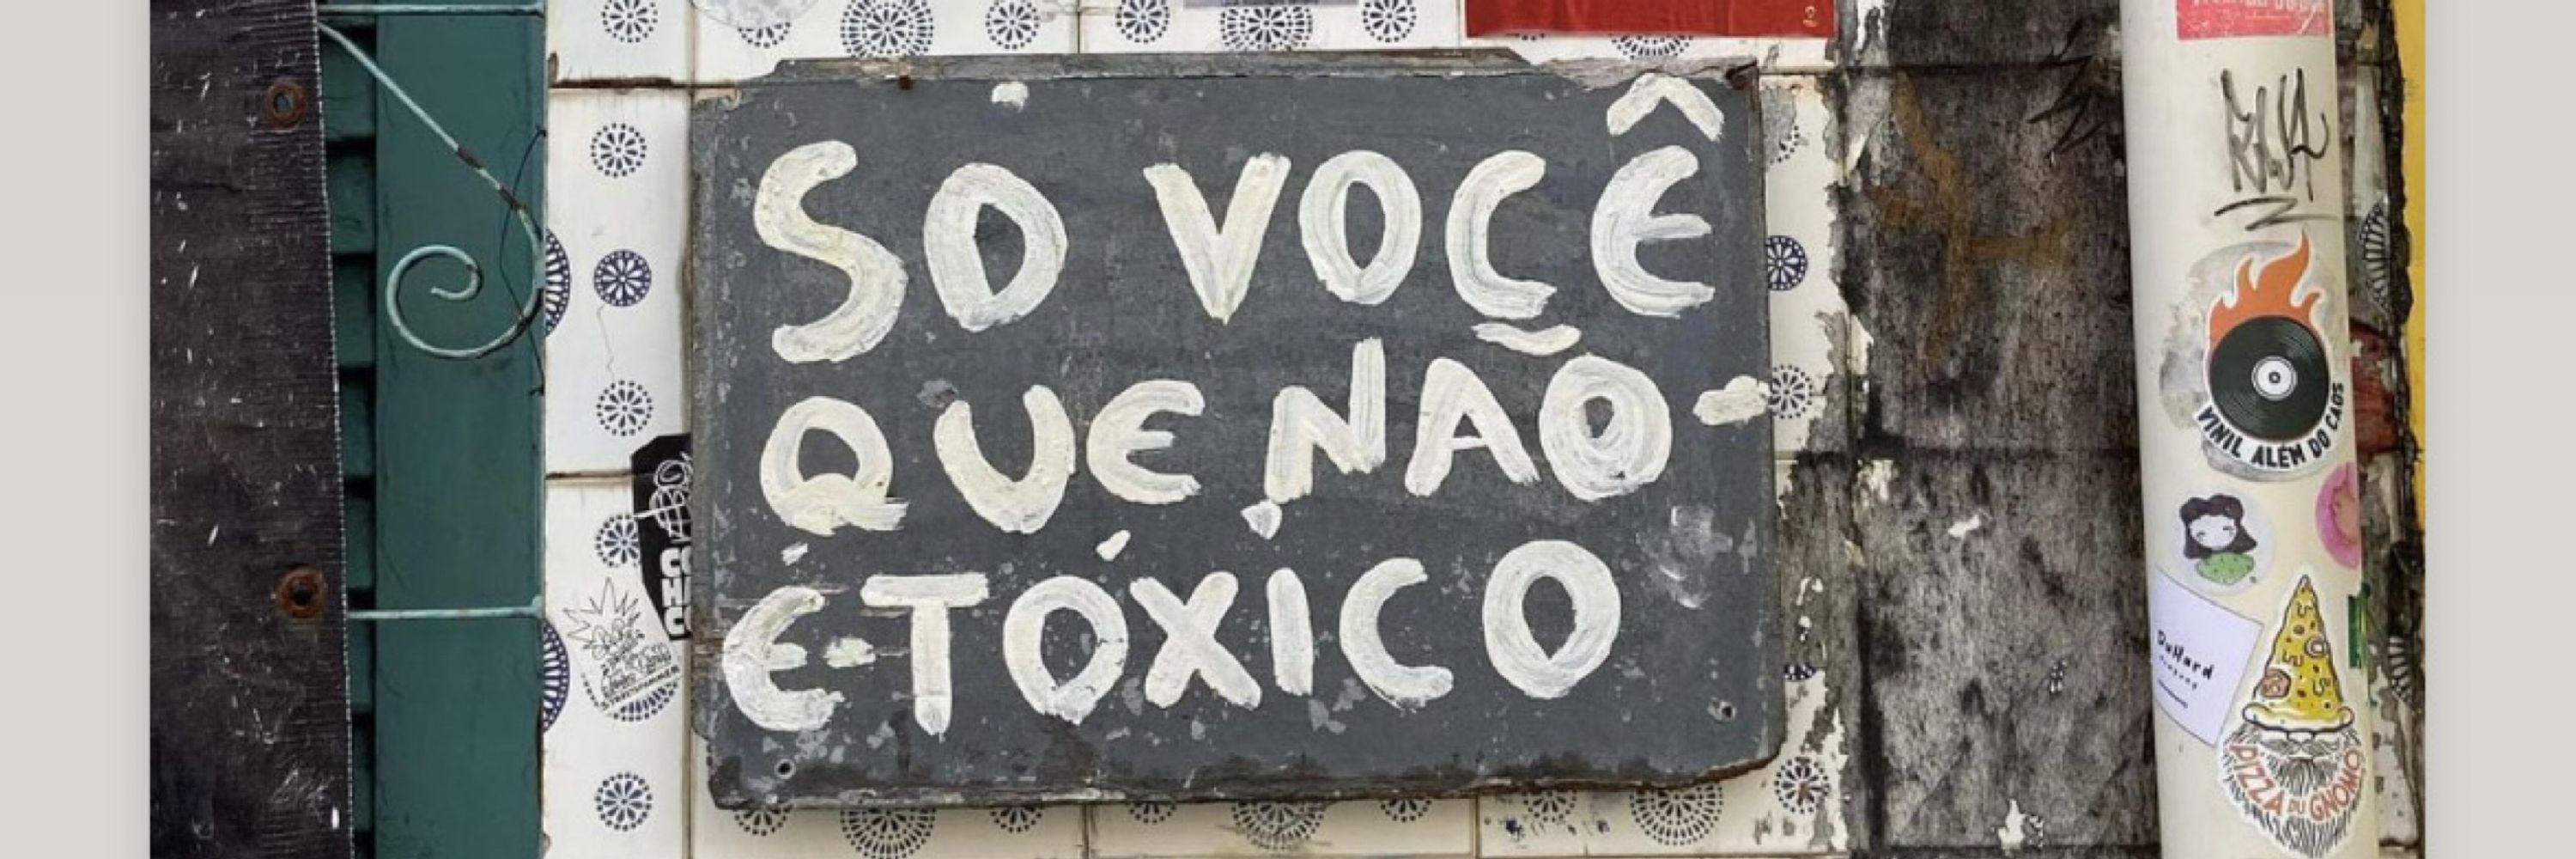 SÓ VOCÊ
QUE NÃO-
É TÓXICO
VINIL ALÉM DO CAOS
PIZZA DU GNOMO